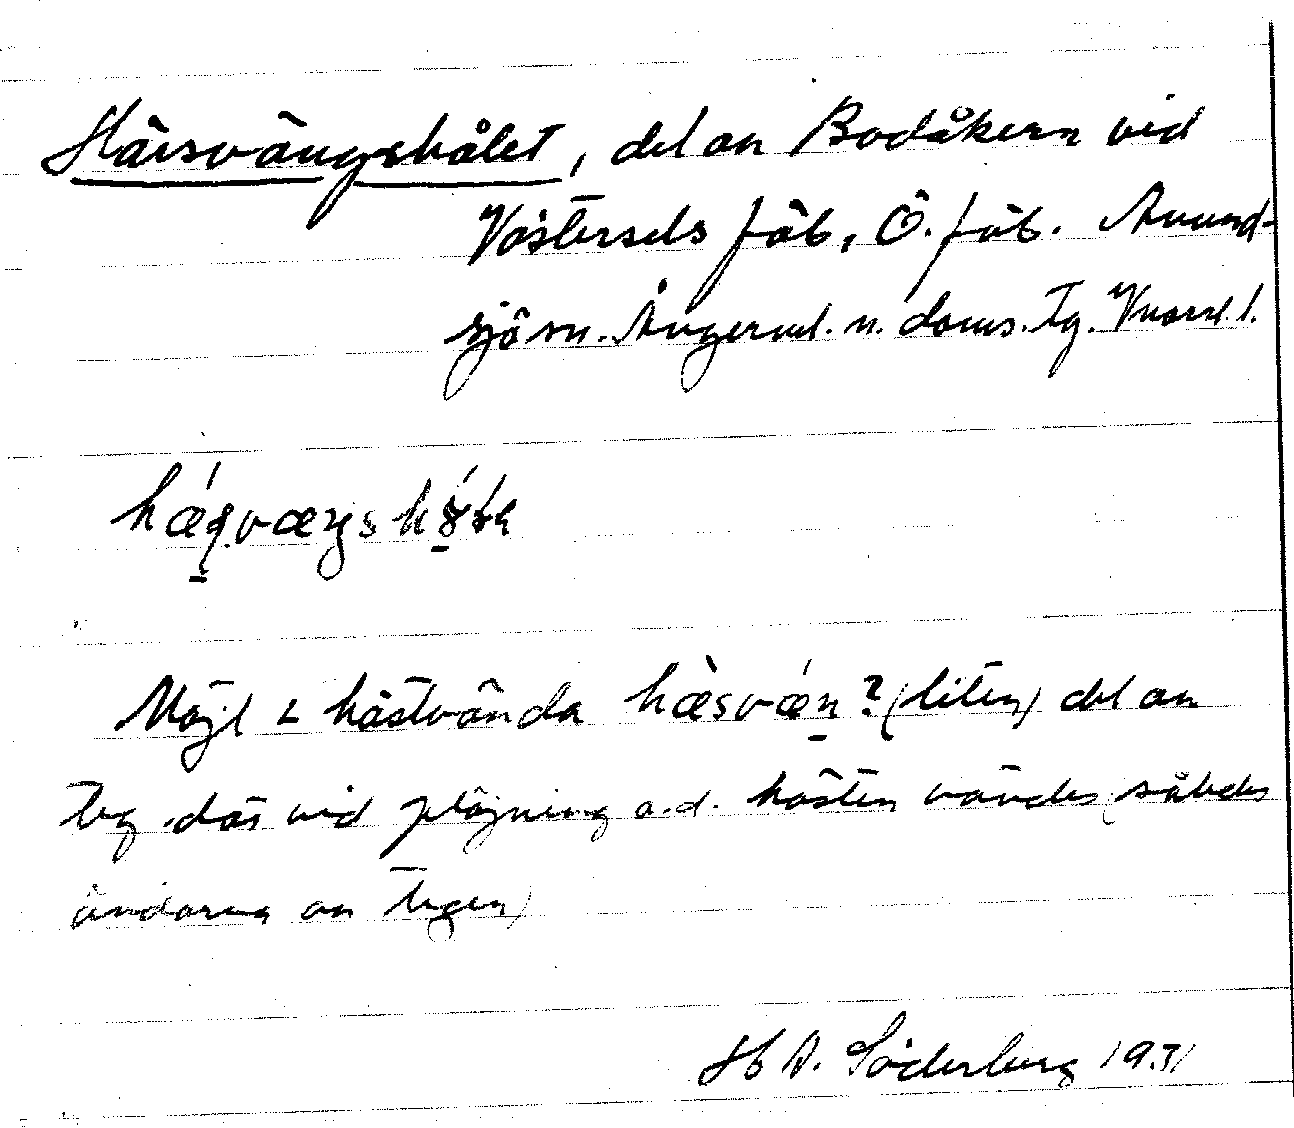 Härsvängshålet, del av Bodåkern vid
Västersels fäb, Ö. fäb. Anund-
sjö sn. Ångerml. n. doms. Tg. Vnorrl. l.
Möjl < hästvända hæsvæn? (liten) del av
teg där vid plöjning o.d. hästen vändes (således
ändarna av tegen)
H A. Söderberg 1931